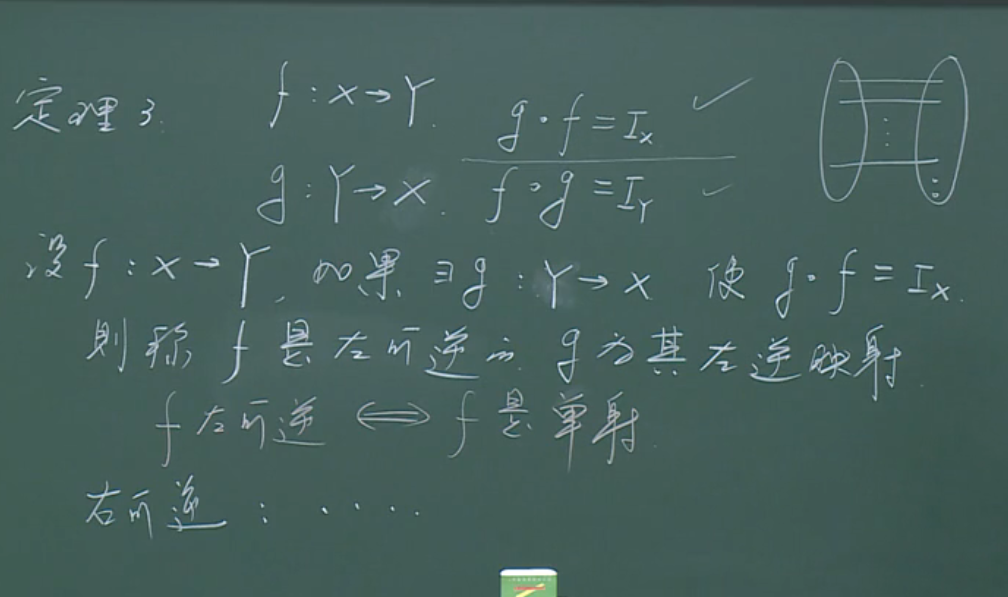 定理3. f : X→Y. g∘f = I_X ✓
g : Y→X. f∘g = I_Y ✓
设 f : X→Y, 如果 ∃g : Y→X 使 g∘f = I_X.
则称 f 是左可逆的. g 为其左逆映射.
f 左可逆 ⟺ f 是单射.
右可逆 : . . . . .